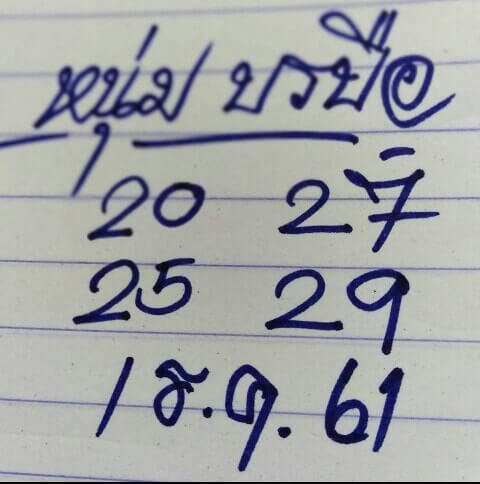 หนุ่ม บรบือ
20 27
25 29
1 ธ.ค. 61